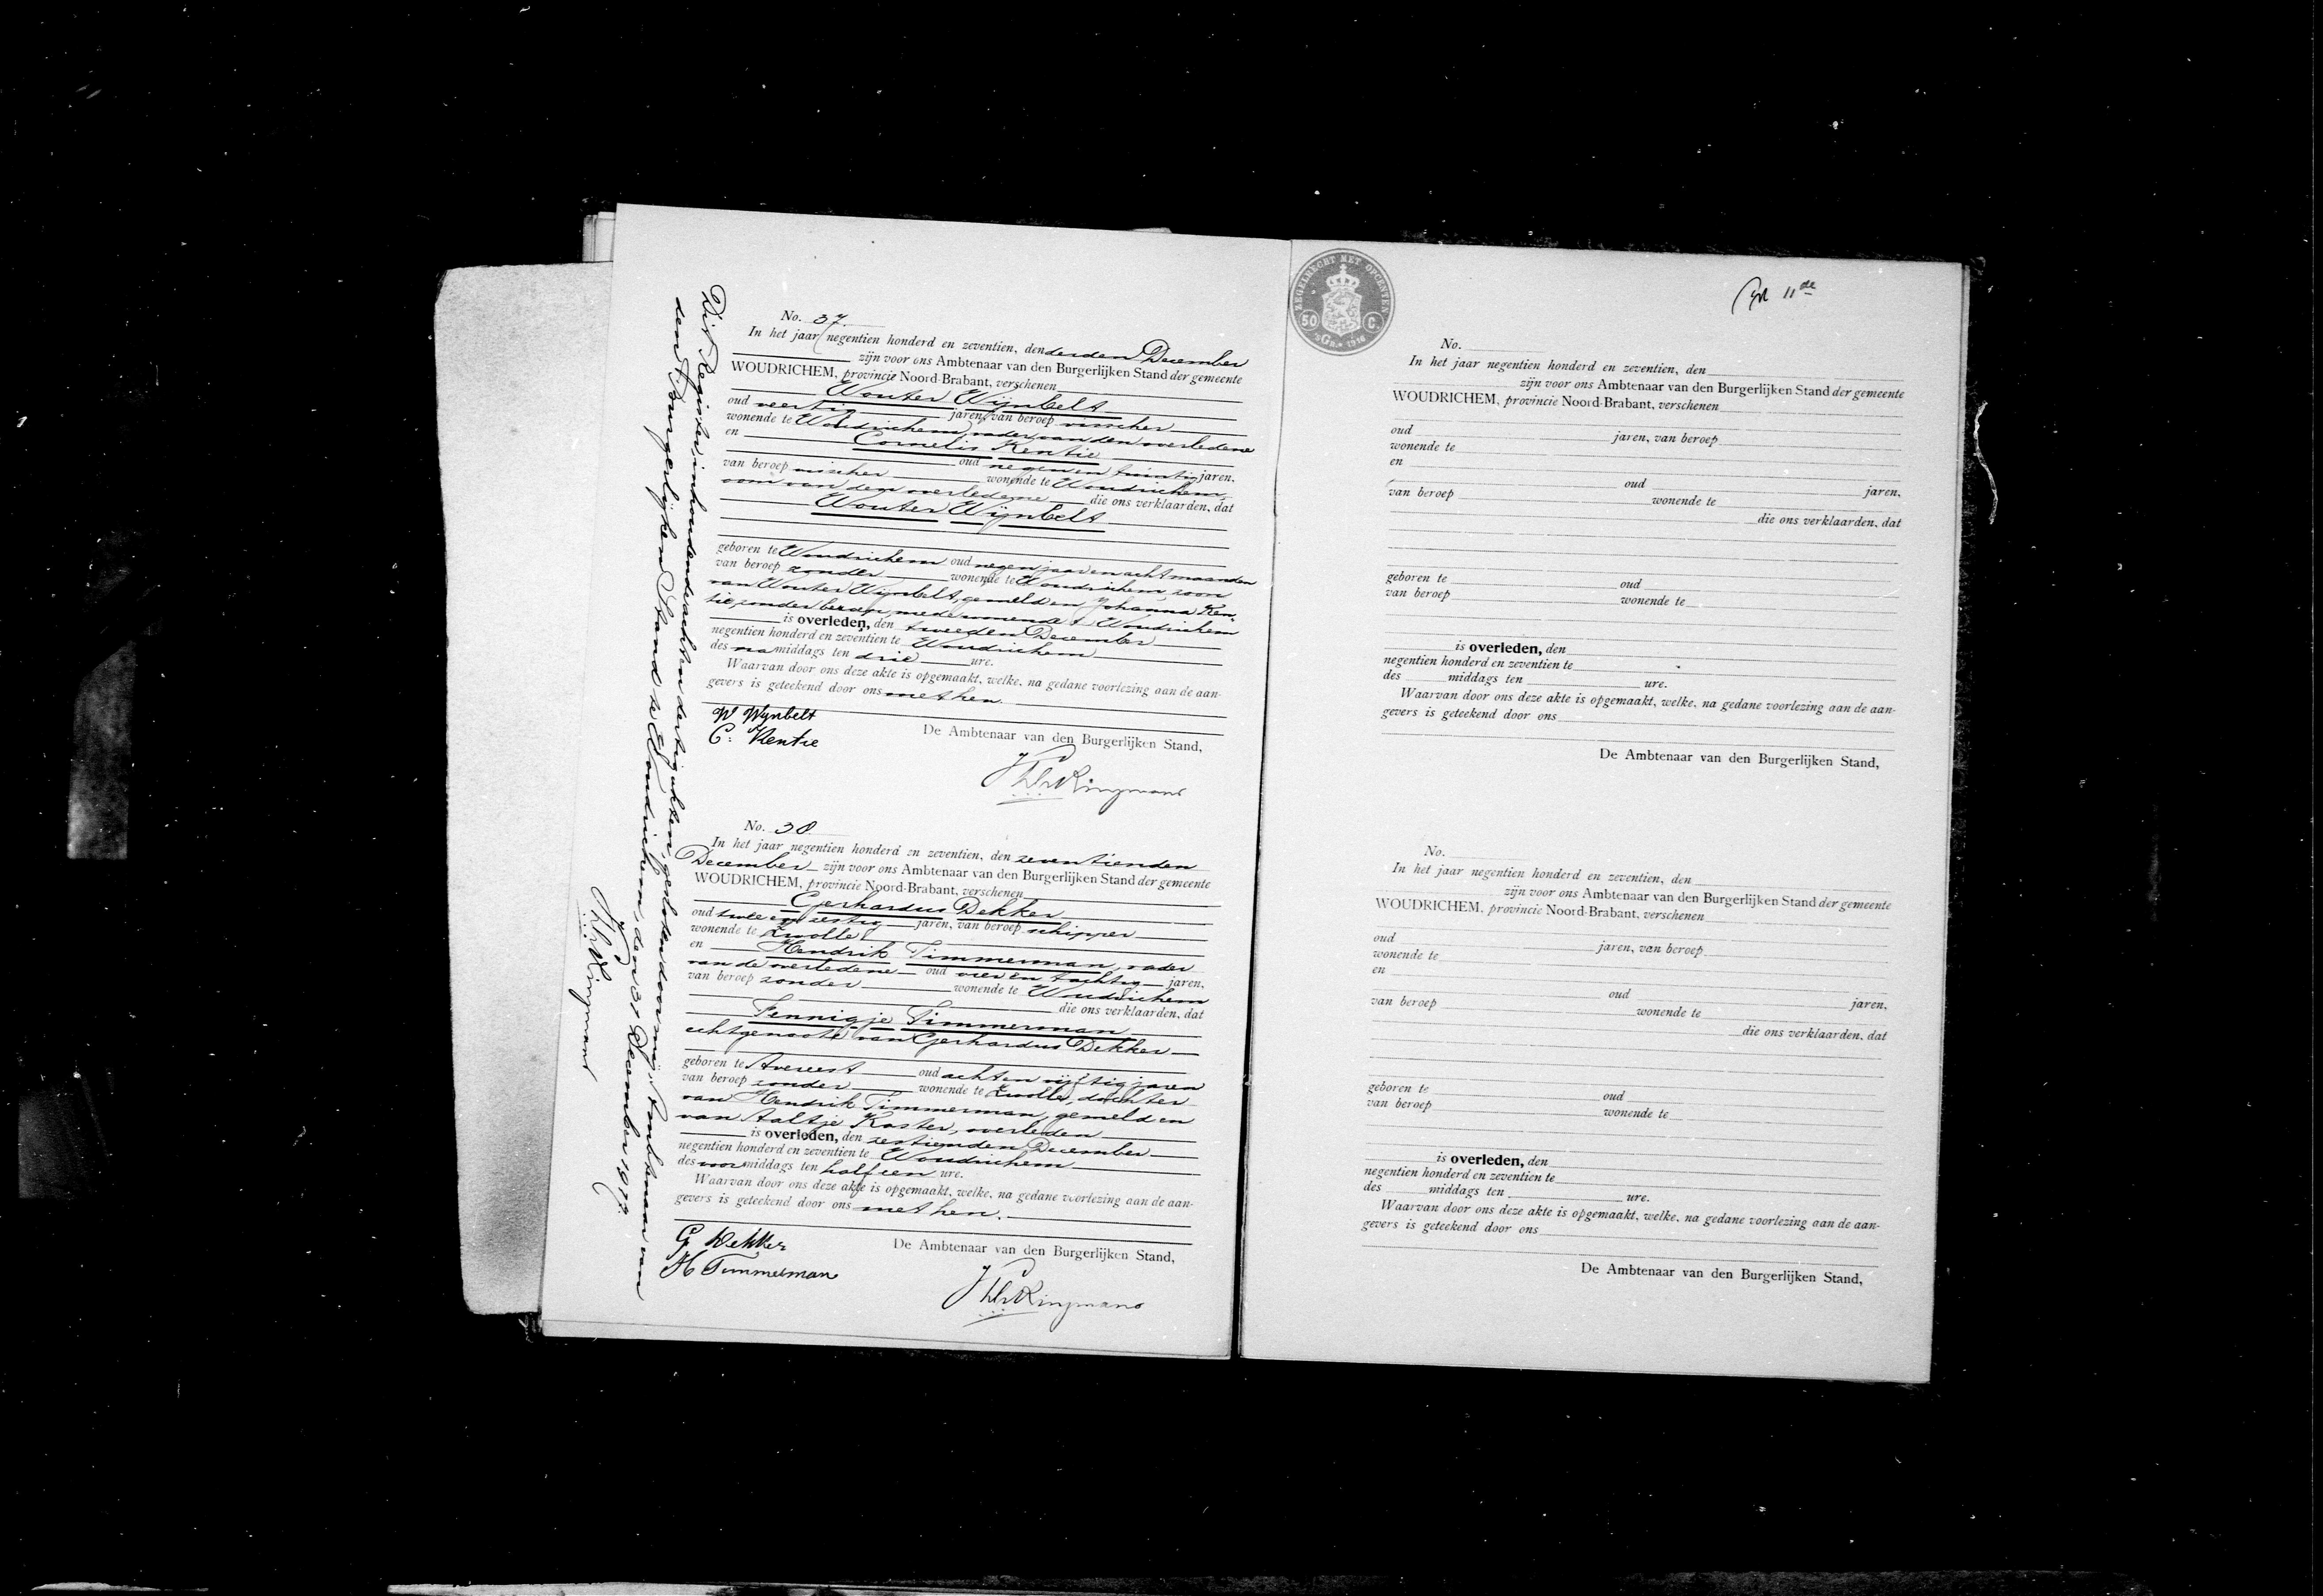 Dit Register, inhoudende acht en dertig akten, gesloten door mij, Ambtenaar van
den Burgerlijken Stand te Woudrichem, den 31 December 1917.
No. 37
In het jaar negentien honderd en zeventien, den derden December
zijn voor ons Ambtenaar van den Burgerlijken Stand der gemeente
WOUDRICHEM, provincie Noord-Brabant, verschenen
Wouter Wijnbelt
oud veertig jaren, van beroep visscher
wonende te Woudrichem, vader van den overledene
en Cornelis Kentie
oud negen en twintig jaren,
van beroep visscher wonende te Woudrichem,
oom van den overledene die ons verklaarden, dat
Wouter Wijnbelt
geboren te Woudrichem oud negen jaar en acht maanden
van beroep zonder wonende te Woudrichem, zoon
van Wouter Wijnbelt, gemeld en Johanna Ken-
tie, zonder beroep, mede wonende te Woudrichem
is overleden, den tweeden December
negentien honderd en zeventien te Woudrichem
des namiddags ten drie ure.
Waarvan door ons deze akte is opgemaakt, welke, na gedane voorlezing aan de aan-
gevers is geteekend door ons met hen.
W Wijnbelt
C: Kentie
De Ambtenaar van den Burgerlijken Stand,
No. 38
In het jaar negentien honderd en zeventien, den zeventienden
December zijn voor ons Ambtenaar van den Burgerlijken Stand der gemeente
WOUDRICHEM, provincie Noord-Brabant, verschenen
Gerhardus Dekker
oud twee en zestig jaren, van beroep schipper
wonende te Zwolle
en Hendrik Timmerman, vader
van de overledene oud vier en tachtig jaren,
van beroep zonder wonende te Woudrichem
die ons verklaarden, dat
Fennigje Timmerman
echtgenoote van Gerhardus Dekker
geboren te Avereest oud acht en vijftig jaren
van beroep zonder wonende te Zwolle, dochter
van Hendrik Timmerman, gemeld en
van Aaltje Koster, overleden
is overleden, den zestienden December
negentien honderd en zeventien te Woudrichem
des voormiddags ten half een ure.
Waarvan door ons deze akte is opgemaakt, welke, na gedane voorlezing aan de aan-
gevers is geteekend door ons met hen.
G Dekker
H Timmerman
De Ambtenaar van den Burgerlijken Stand,
ZEGELRECHT MET OPCENTEN
50 C.
11de
No.
In het jaar negentien honderd en zeventien, den
zijn voor ons Ambtenaar van den Burgerlijken Stand der gemeente
WOUDRICHEM, provincie Noord-Brabant, verschenen
oud jaren, van beroep
wonende te
en
oud jaren,
van beroep wonende te
die ons verklaarden, dat
geboren te oud
van beroep wonende te
is overleden, den
negentien honderd en zeventien te
des middags ten ure.
Waarvan door ons deze akte is opgemaakt, welke, na gedane voorlezing aan de aan-
gevers is geteekend door ons
De Ambtenaar van den Burgerlijken Stand,
No.
In het jaar negentien honderd en zeventien, den
zijn voor ons Ambtenaar van den Burgerlijken Stand der gemeente
WOUDRICHEM, provincie Noord-Brabant, verschenen
oud jaren, van beroep
wonende te
en
oud jaren,
van beroep wonende te
die ons verklaarden, dat
geboren te oud
van beroep wonende te
is overleden, den
negentien honderd en zeventien te
des middags ten ure.
Waarvan door ons deze akte is opgemaakt, welke, na gedane voorlezing aan de aan-
gevers is geteekend door ons
De Ambtenaar van den Burgerlijken Stand,